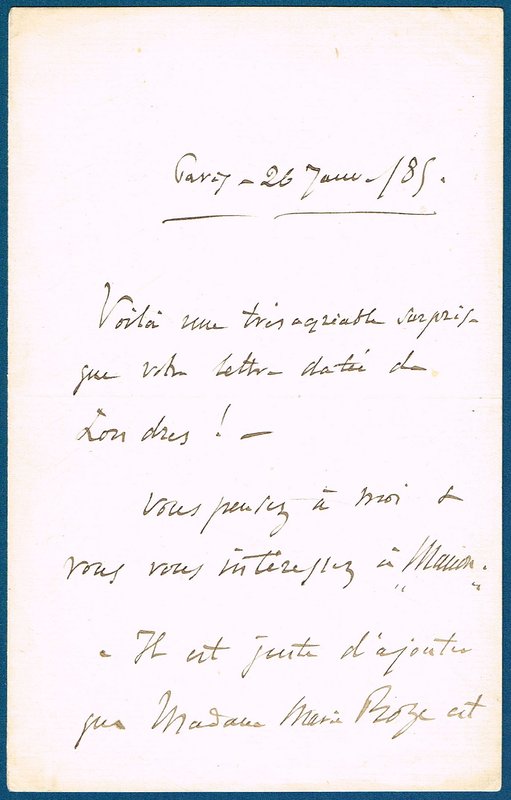 Paris – 26 Janv. /85.
Voilà une très agréable surprise
que votre lettre datée de
Londres ! –
Vous pensez à moi &
vous vous intéressez à "Manon".
– Il est juste d'ajouter
que Madame Marie Roze est